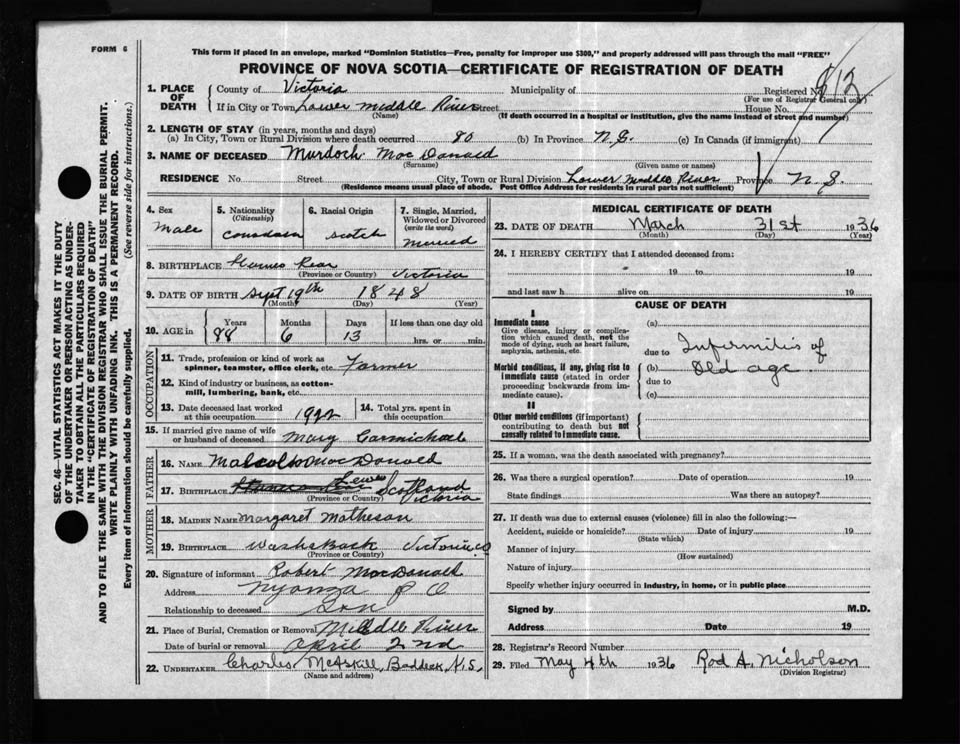 FORM 6
This form if placed in an envelope, marked "Dominion Statistics—Free, penalty for improper use $300," and properly addressed will pass through the mail "FREE"
PROVINCE OF NOVA SCOTIA—CERTIFICATE OF REGISTRATION OF DEATH
SEC. 46—VITAL STATISTICS ACT MAKES IT THE DUTY
OF THE UNDERTAKER OR PERSON ACTING AS UNDER-
TAKER TO OBTAIN ALL THE PARTICULARS REQUIRED
IN THE "CERTIFICATE OF REGISTRATION OF DEATH"
AND TO FILE THE SAME WITH THE DIVISION REGISTRAR WHO SHALL ISSUE THE BURIAL PERMIT.
WRITE PLAINLY WITH UNFADING INK. THIS IS A PERMANENT RECORD.
Every item of information should be carefully supplied. (See reverse side for instructions.)
1. PLACE OF DEATH County of Victoria Municipality of Registered No. 812
(For use of Registrar General only)
If in City or Town Lower Middle River Street House No.
(Name) (If death occurred in a hospital or institution, give the name instead of street and number)
2. LENGTH OF STAY (in years, months and days)
(a) In City, Town or Rural Division where death occurred 80 (b) In Province N.S. (c) In Canada (if immigrant)
3. NAME OF DECEASED Murdoch MacDonald
(Surname) (Given name or names)
RESIDENCE No. Street City, Town or Rural Division Lower Middle River Province N.S.
(Residence means usual place of abode. Post Office Address for residents in rural parts not sufficient)
4. Sex Male
5. Nationality (Citizenship) Canadian
6. Racial Origin Scotch
7. Single, Married, Widowed or Divorced (write the word) Married
8. BIRTHPLACE Rear Victoria
(Province or Country)
9. DATE OF BIRTH Sept 19th 1848
(Month) (Day) (Year)
10. AGE in Years 88 Months 6 Days 13 If less than one day old hrs. or min.
OCCUPATION
11. Trade, profession or kind of work as spinner, teamster, office clerk, etc. Farmer
12. Kind of industry or business, as cotton-mill, lumbering, bank, etc.
13. Date deceased last worked at this occupation 1922
14. Total yrs. spent in this occupation
15. If married give name of wife or husband of deceased Mary Carmichael
FATHER
16. NAME Malcolm MacDonald
17. BIRTHPLACE Lewis Scotland Victoria
(Province or Country)
MOTHER
18. MAIDEN NAME Margaret Matheson
19. BIRTHPLACE Washaback Victoria Co
(Province or Country)
20. Signature of informant Robert MacDonald
Address Nyanza P O
Relationship to deceased Son
21. Place of Burial, Cremation or Removal Middle River
Date of burial or removal April 2nd
22. UNDERTAKER Charles McAskill, Baddeck, N.S.
(Name and address)
MEDICAL CERTIFICATE OF DEATH
23. DATE OF DEATH March 31st 1936
(Month) (Day) (Year)
24. I HEREBY CERTIFY that I attended deceased from:
19 to 19
and last saw h alive on 19
CAUSE OF DEATH
I
Immediate cause
Give disease, injury or complication which caused death, not the mode of dying, such as heart failure, asphyxia, asthenia, etc.
(a)
due to Infirmities of
Morbid conditions, if any, giving rise to immediate cause (stated in order proceeding backwards from immediate cause).
(b) Old age
due to
(c)
II
Other morbid conditions (if important) contributing to death but not causally related to immediate cause.
25. If a woman, was the death associated with pregnancy?
26. Was there a surgical operation? Date of operation 19
State findings Was there an autopsy?
27. If death was due to external causes (violence) fill in also the following:—
Accident, suicide or homicide? Date of injury 19
(State which)
Manner of injury
(How sustained)
Nature of injury
Specify whether injury occurred in industry, in home, or in public place
Signed by M.D.
Address Date 19
28. Registrar's Record Number
29. Filed May 4th 1936 Rod A. Nicholson
(Division Registrar)